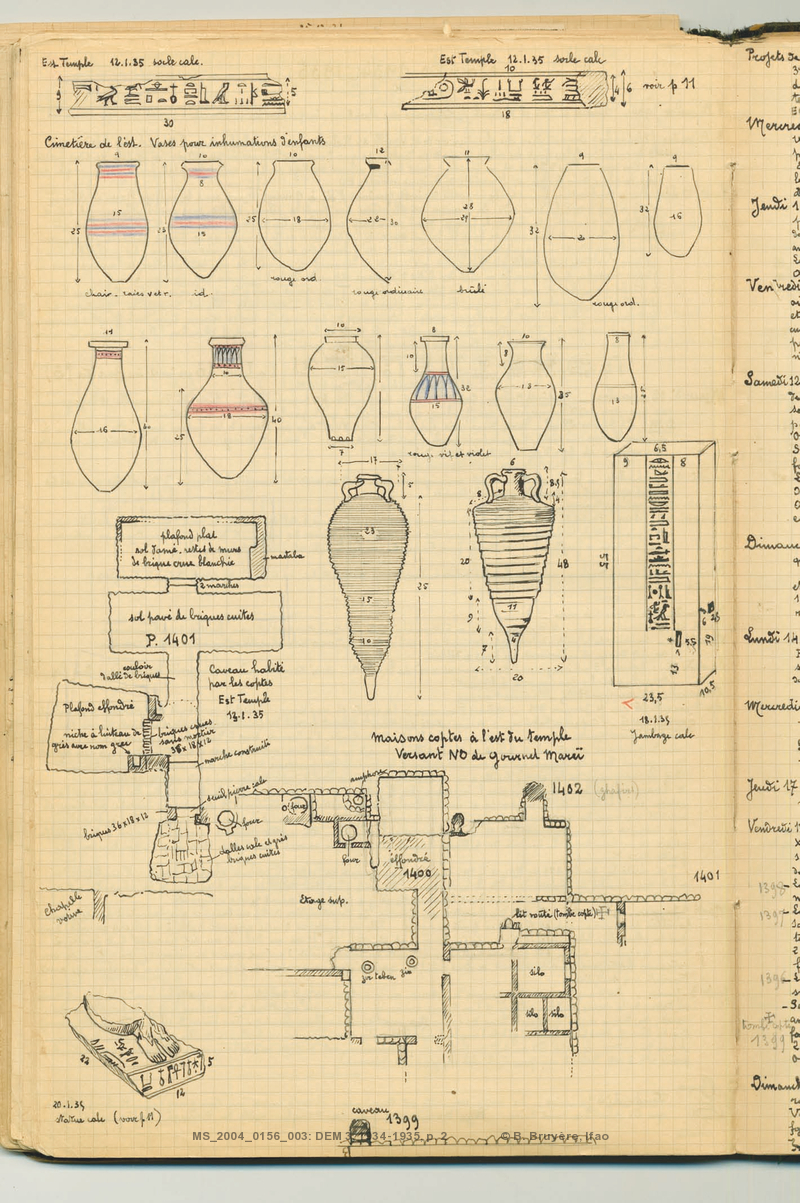 Est Temple 12.1.35 socle calc.
Est Temple 12.1.35 socle calc
9
5
30
10
4
6
voir p 11
18
Cimetière de l'est. Vases pour inhumations d'enfants
9
10
10
12
11
9
9
8
25
15
15
25
18
22
30
28
29
32
20
32
16
chair - raies v et r.
id.
rouge ord.
rouge ordinaire
brûlé
rouge ord.
11
10
8
10
8
16
40
25
18
40
15
10
32
15
8
13
35
13
7
rouge vif et violet
17
7
5
6
8
8,5
14
23
15
10
25
20
11
9
7
48
20
6,5
9
8
55
23,5
10,5
18.1.35
Jambage calc
plafond plat
sol damé, restes de murs
de brique crue blanchie
mastaba
2 marches
sol pavé de briques cuites
P. 1401
couloir
dallé de briques
Caveau habité
par les coptes
Est Temple
13.1.35
Plafond effondré
niche à linteau de
grès avec nom grec
briques crues
sans mortier
38x18x12
marche construite
seuil pierre calc
brique 36x18x12
four
dalles calc et grès
briques cuites
Maisons coptes à l'est du temple
Versant NO de Gournet Mareï
amphore
four
four
effondré
1400
1402 (ghafir)
1401
Chapelle
votive
Etage sup.
lit rôuti (tombe copte)
zir taben
zir
silo
silo
silo
22
5
12
20.1.35
statue calc (voir p 11)
caveau
1399
MS_2004_0156_003: DEM 3 1934-1935, p. 2
© B. Bruyère, Ifao
Projets de
Mercredi
Jeudi 1
Vendredi
Samedi 12
Dimanc
Lundi 14
Mercredi
Jeudi 17
Vendredi 1
1398
1397
1396
1399
Dimanch